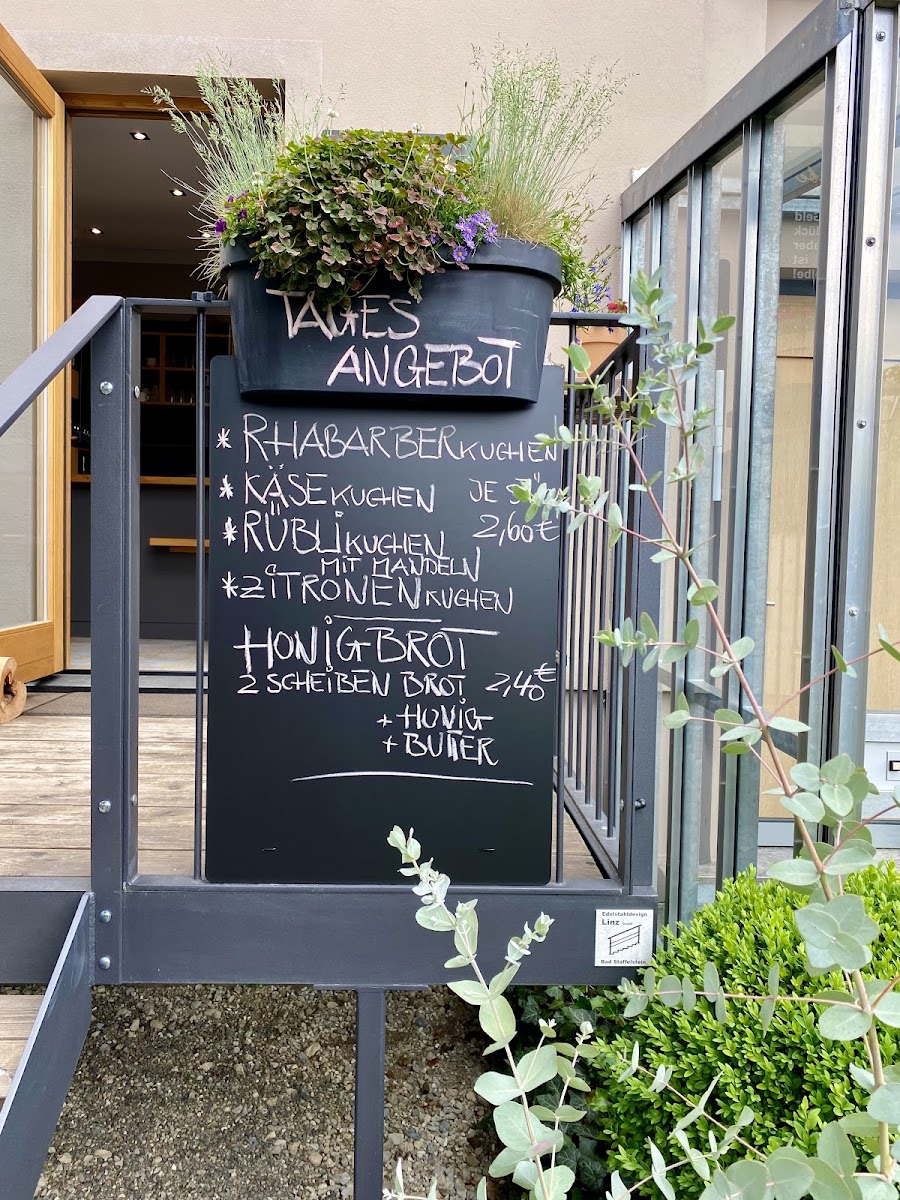 TAGES
ANGEBOT
* RHABARBERKUCHEN
* KÄSEKUCHEN JE
* RÜBLIKUCHEN 2,60€
MIT MANDELN
* ZITRONENKUCHEN
HONIGBROT
2 SCHEIBEN BROT 2,40€
+ HONIG
+ BUTTER
Edelstahldesign
Linz GmbH
Bad Staffelstein